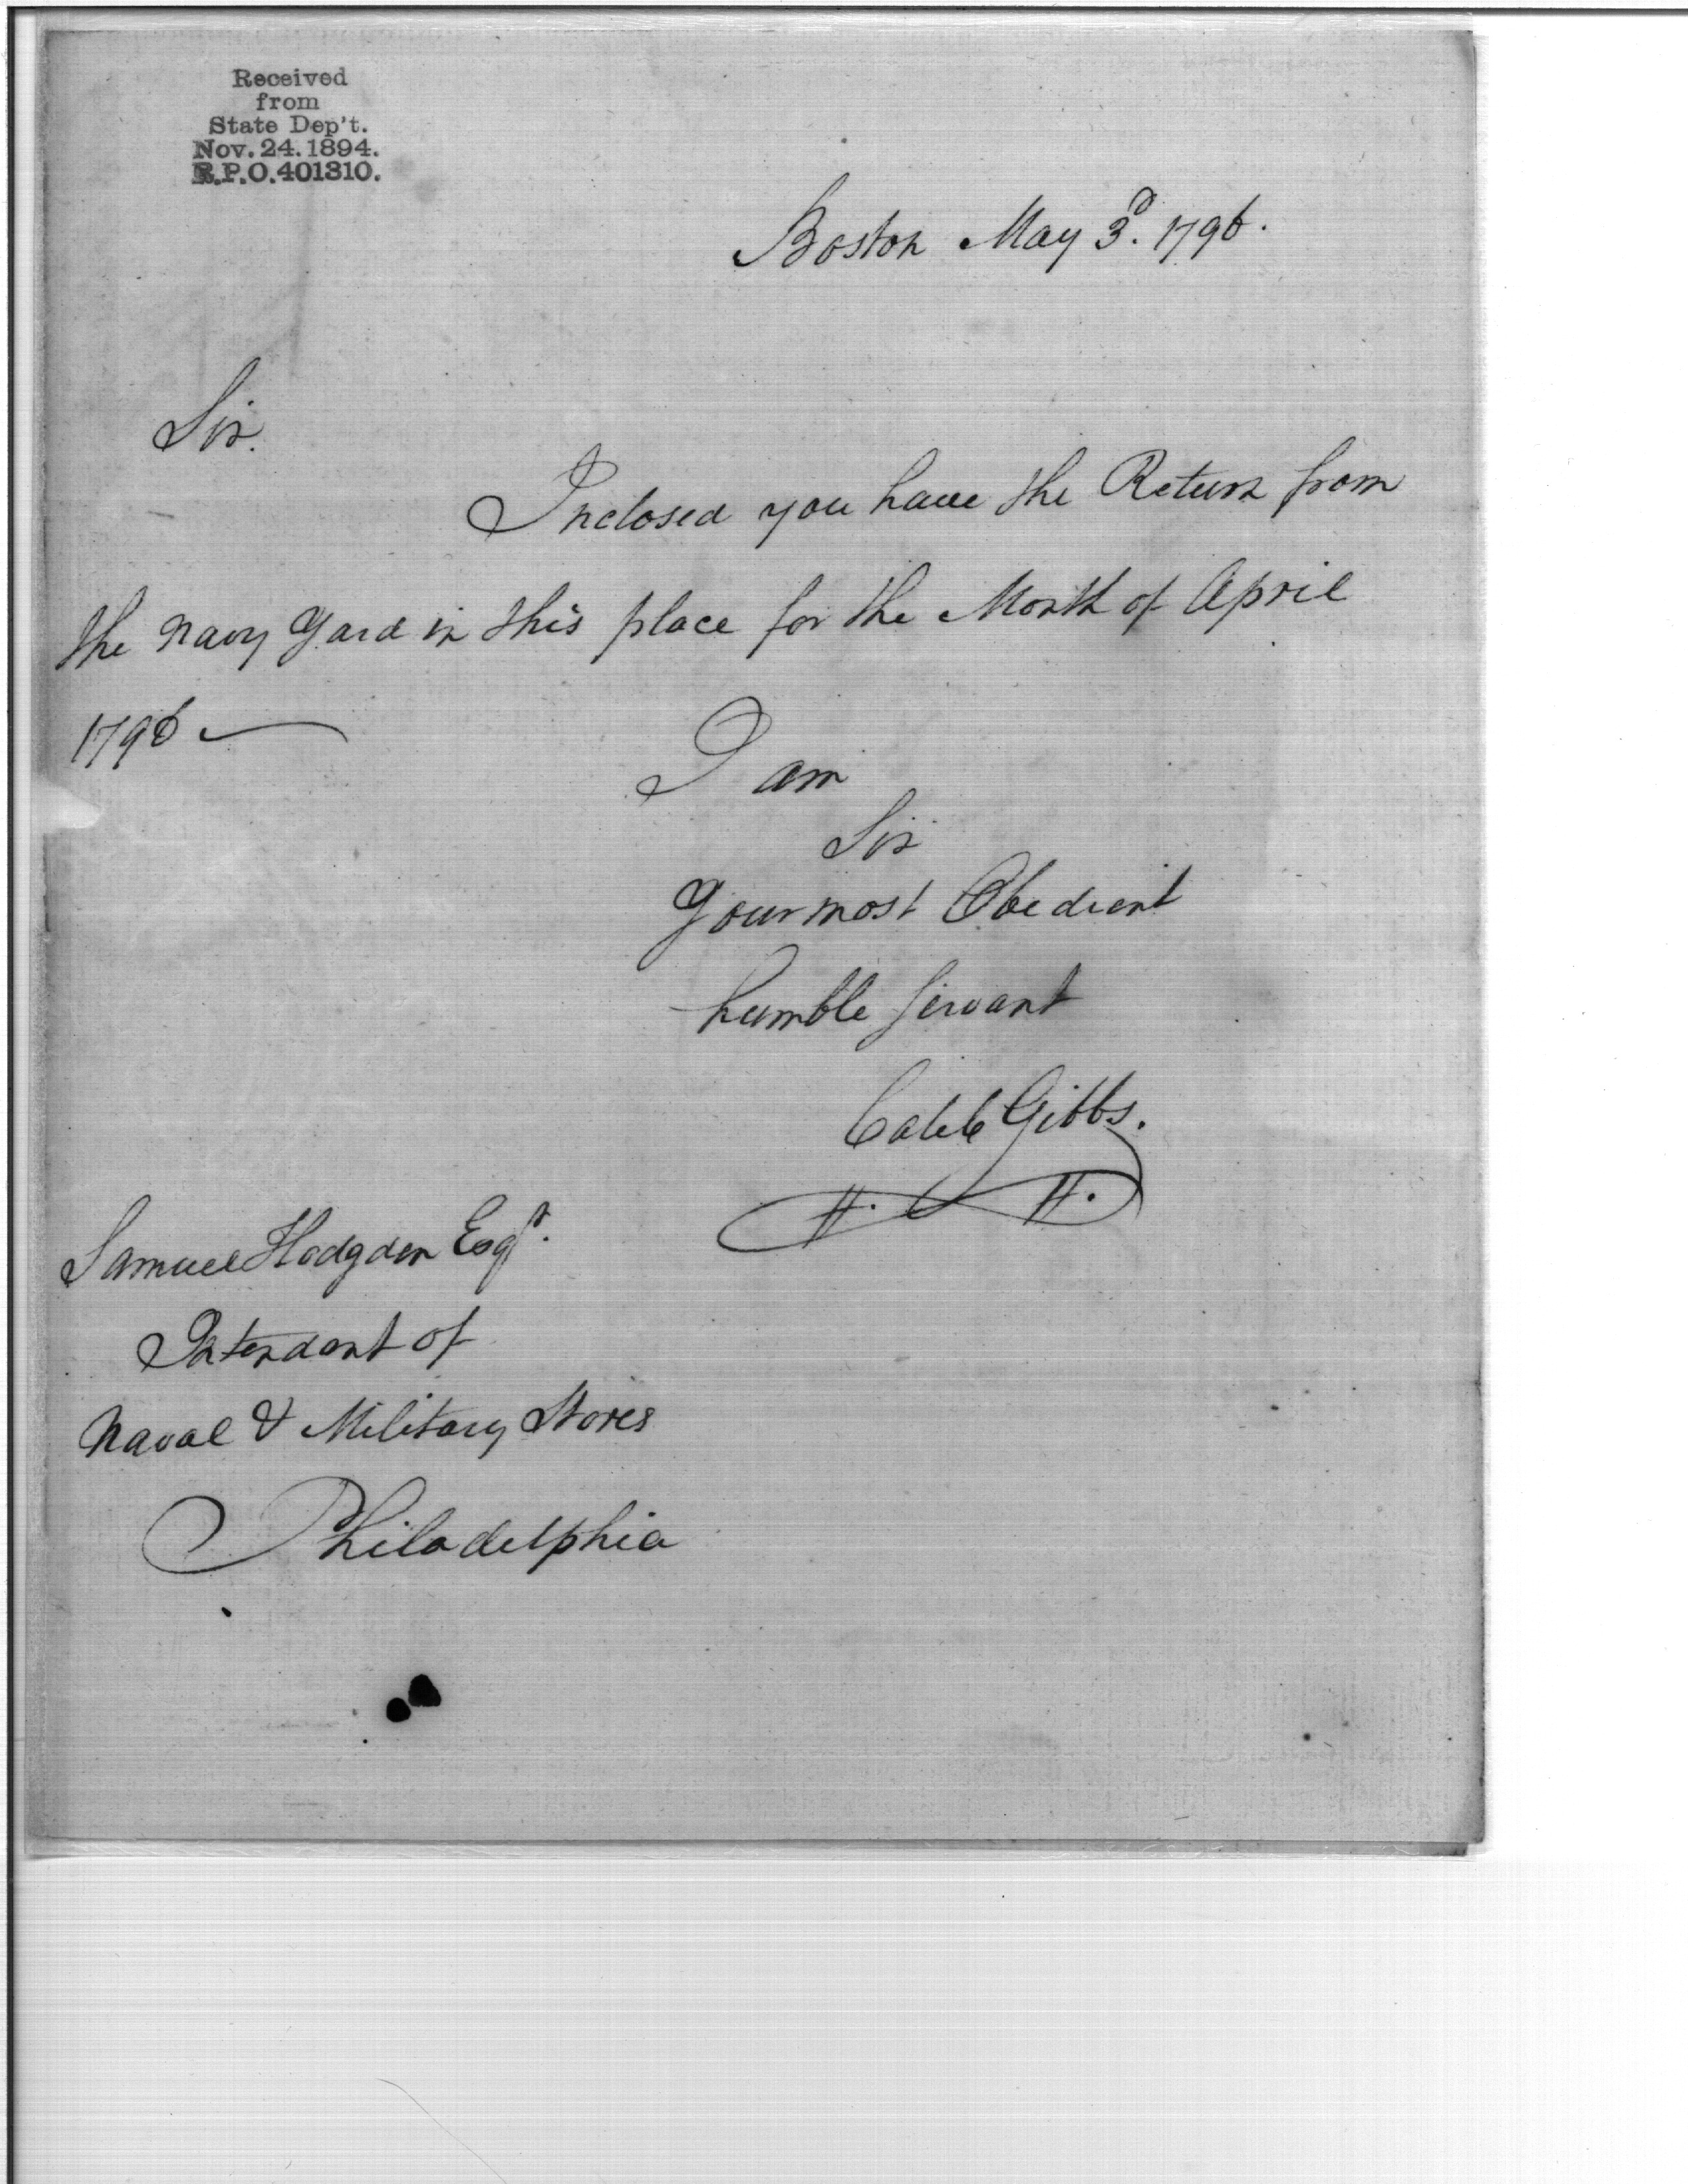 Received
from
State Dep't.
Nov. 24. 1894.
R.P.O. 401310.
Boston May 3d. 1796.
Sir.
Inclosed you have the Return from
the Navy Yard in this place for the Month of April
1796
I am
Sir
Your most Obedient
humble Servant
Caleb Gibbs.
Samuel Hodgden Esqr.
Intendant of
Naval & Military Stores
Philadelphia